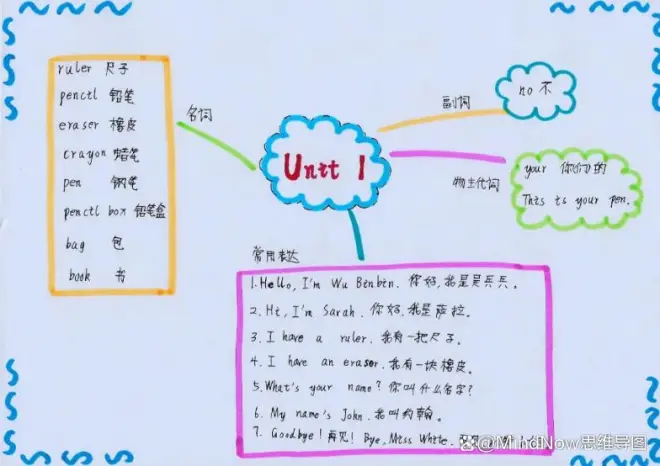 Unit 1
名词
ruler 尺子
pencil 铅笔
eraser 橡皮
crayon 蜡笔
pen 钢笔
pencil box 铅笔盒
bag 包
book 书
副词
no 不
物主代词
your 你(们)的
This is your pen.
常用表达
1. Hello, I'm Wu Binbin. 你好,我是吴兵兵。
2. Hi, I'm Sarah. 你好,我是萨拉。
3. I have a ruler. 我有一把尺子。
4. I have an eraser. 我有一块橡皮。
5. What's your name? 你叫什么名字?
6. My name's John. 我叫约翰。
7. Goodbye! 再见! Bye, Miss White.
@MindNow思维导图